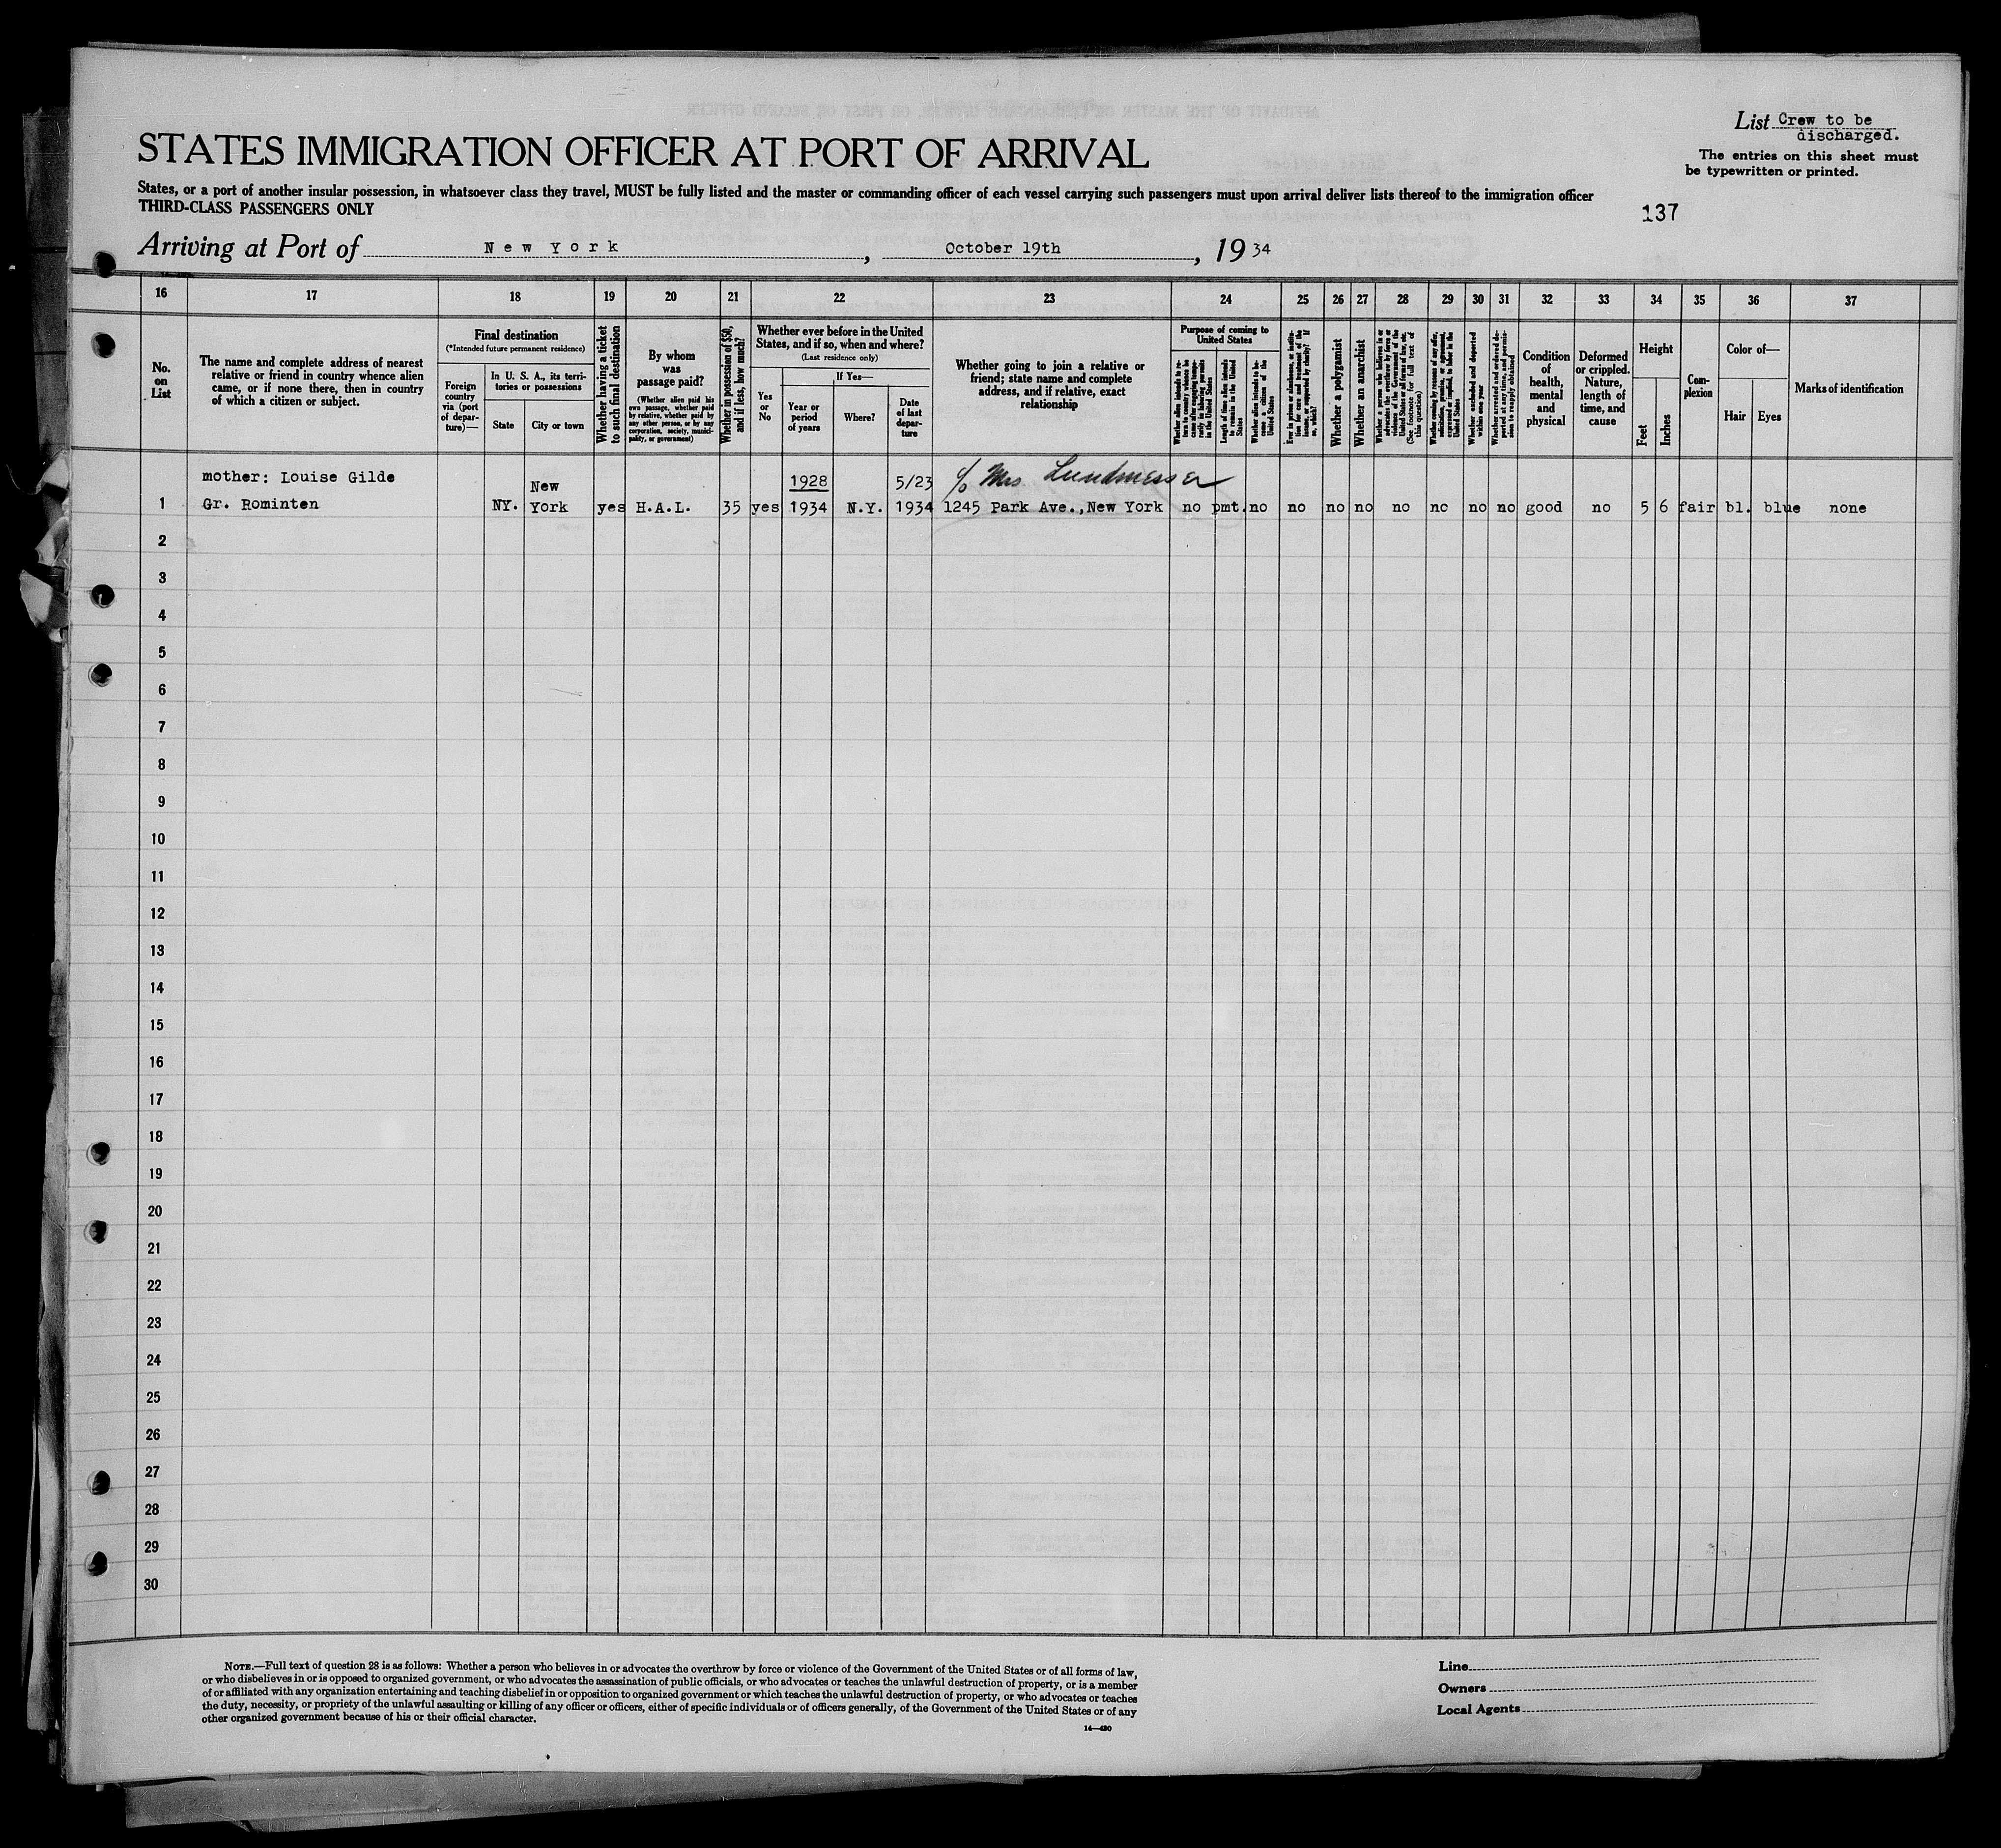 List Crew to be
discharged.
The entries on this sheet must
be typewritten or printed.
STATES IMMIGRATION OFFICER AT PORT OF ARRIVAL
States, or a port of another insular possession, in whatsoever class they travel, MUST be fully listed and the master or commanding officer of each vessel carrying such passengers must upon arrival deliver lists thereof to the immigration officer
THIRD-CLASS PASSENGERS ONLY
137
Arriving at Port of New York, October 19th, 1934
16 17 18 19 20 21 22 23 24 25 26 27 28 29 30 31 32 33 34 35 36 37
No.
on
List
The name and complete address of nearest
relative or friend in country whence alien
came, or if none there, then in country
of which a citizen or subject.
Final destination
(*Intended future permanent residence)
Foreign
country
via (port
of depar-
ture)—
In U. S. A., its terri-
tories or possessions
State
City or town
Whether having a ticket
to such final destination
By whom
was
passage paid?
(Whether alien paid his
own passage, whether paid
by relative, whether paid by
any other person, or by any
corporation, society, munici-
pality, or government)
Whether in possession of $50,
and if less, how much?
Whether ever before in the United
States, and if so, when and where?
(Last residence only)
Yes
or
No
If Yes—
Year or
period
of years
Where?
Date
of last
depar-
ture
Whether going to join a relative or
friend; state name and complete
address, and if relative, exact
relationship
Purpose of coming to
United States
Whether alien intends to re-
turn to country whence he
came after engaging tempo-
rarily in laboring pursuits
in the United States
Length of time alien intends
to remain in the United
States
Whether alien intends to be-
come a citizen of the
United States
Ever in prison or almshouse, or institu-
tion for care and treatment of the
insane, or supported by charity? If
so, which?
Whether a polygamist
Whether an anarchist
Whether a person who believes in or
advocates the overthrow by force or
violence of the Government of the
United States or all forms of law, etc.
(See footnote for full text of
this question)
Whether coming by reason of any offer,
solicitation, promise, or agreement,
expressed or implied, to labor in the
United States
Whether excluded and deported
within one year
Whether arrested and ordered de-
ported at any time, and permis-
sion to reapply obtained
Condition
of
health,
mental
and
physical
Deformed
or crippled.
Nature,
length of
time, and
cause
Height
Feet
Inches
Com-
plexion
Color of—
Hair
Eyes
Marks of identification
mother: Louise Gilde 1928 5/23 c/o Mrs.
New
1 Gr. Rominten NY. York yes H.A.L. 35 yes 1934 N.Y. 1934 1245 Park Ave.,New York no pmt. no no no no no no no no good no 5 6 fair bl. blue none
2
3
4
5
6
7
8
9
10
11
12
13
14
15
16
17
18
19
20
21
22
23
24
25
26
27
28
29
30
NOTE.—Full text of question 28 is as follows: Whether a person who believes in or advocates the overthrow by force or violence of the Government of the United States or of all forms of law,
or who disbelieves in or is opposed to organized government, or who advocates the assassination of public officials, or who advocates or teaches the unlawful destruction of property, or is a member
of or affiliated with any organization entertaining and teaching disbelief in or opposition to organized government or which teaches the unlawful destruction of property, or who advocates or teaches
the duty, necessity, or propriety of the unlawful assaulting or killing of any officer or officers, either of specific individuals or of officers generally, of the Government of the United States or of any
other organized government because of his or their official character.
14—430
Line
Owners
Local Agents